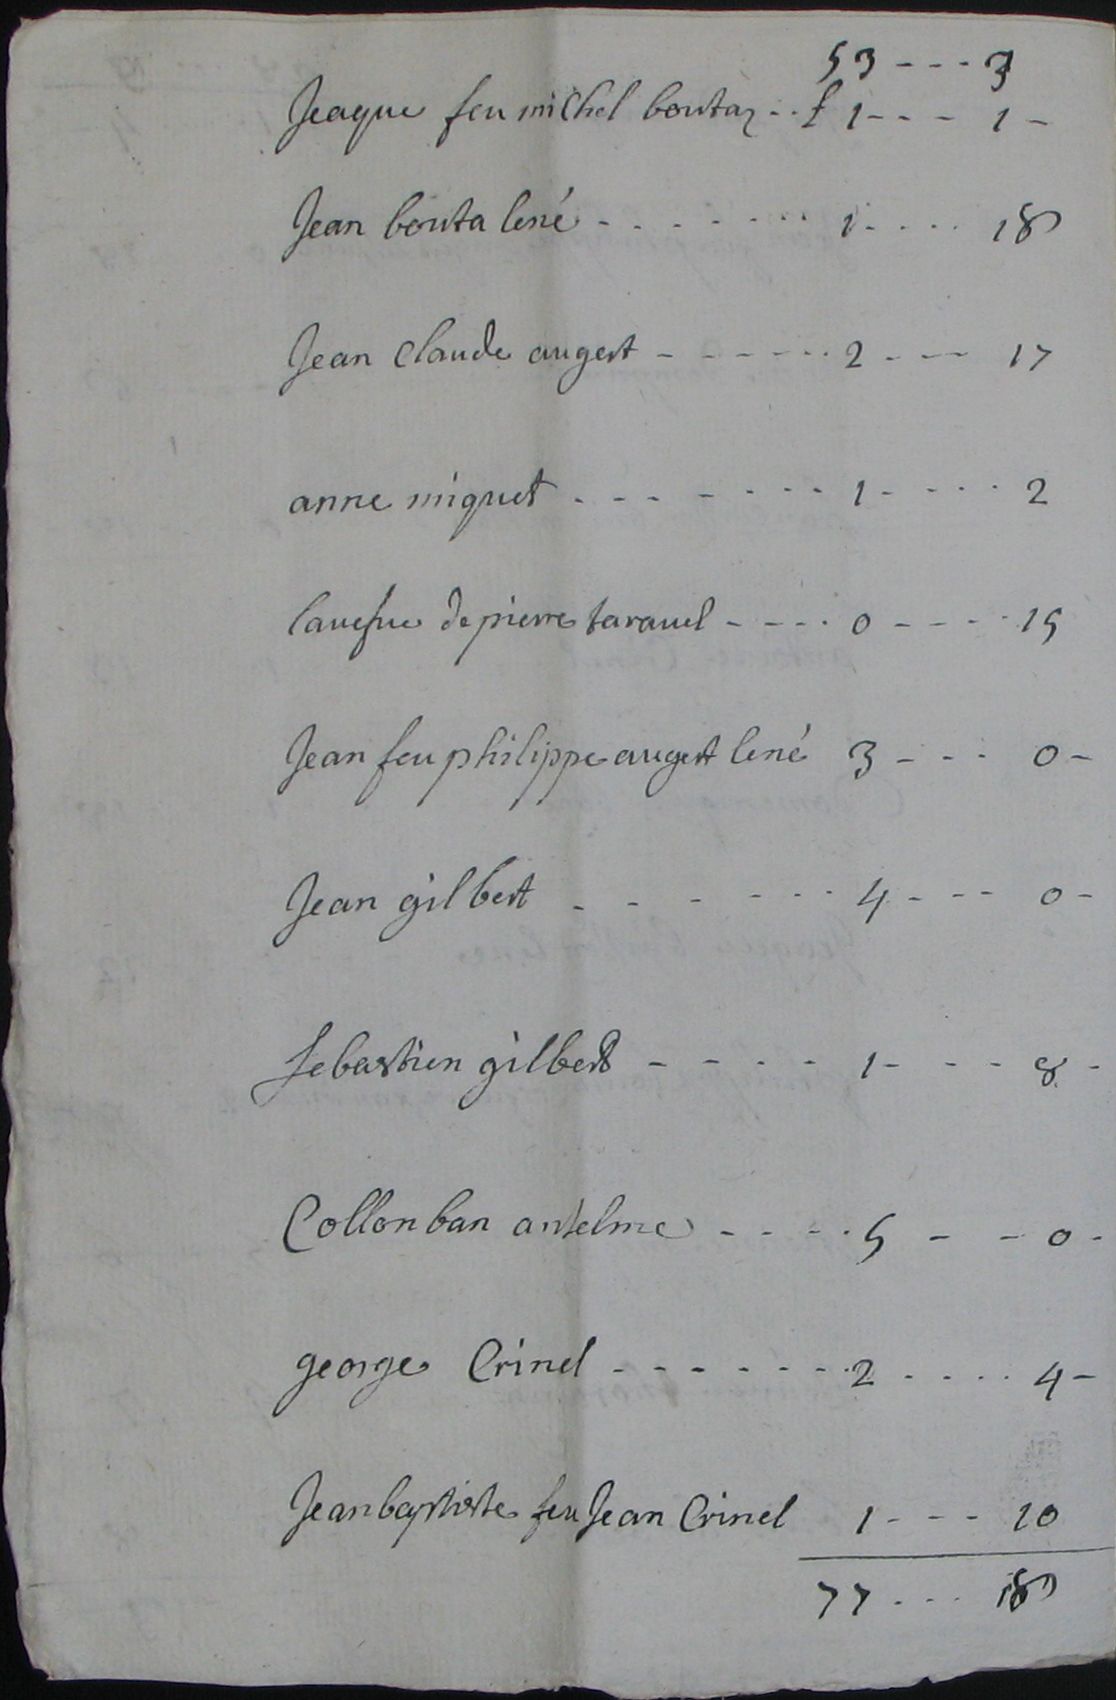 53 - - - 3
Jeaque feu michel boutaz - - £ 1 - - - 1 -
Jean bouta lené - - - - - - - 1 - - - - 18
Jean Claude augert - - - - - - 2 - - - 17
anne miquet - - - - - - - 1 - - - - - 2
lauefue de pierre tarauel - - - - 0 - - - - 15
Jean feu philippe augert lené 3 - - - 0 -
Jean gilbert - - - - - - 4 - - - 0 -
Sebastien gilbert - - - - - 1 - - - 8 -
Collonban antelme - - - - 5 - - 0 -
george Crinel - - - - - - - 2 - - - - 4 -
Jean baptiste feu Jean Crinel 1 - - - 10
77 - - - 18